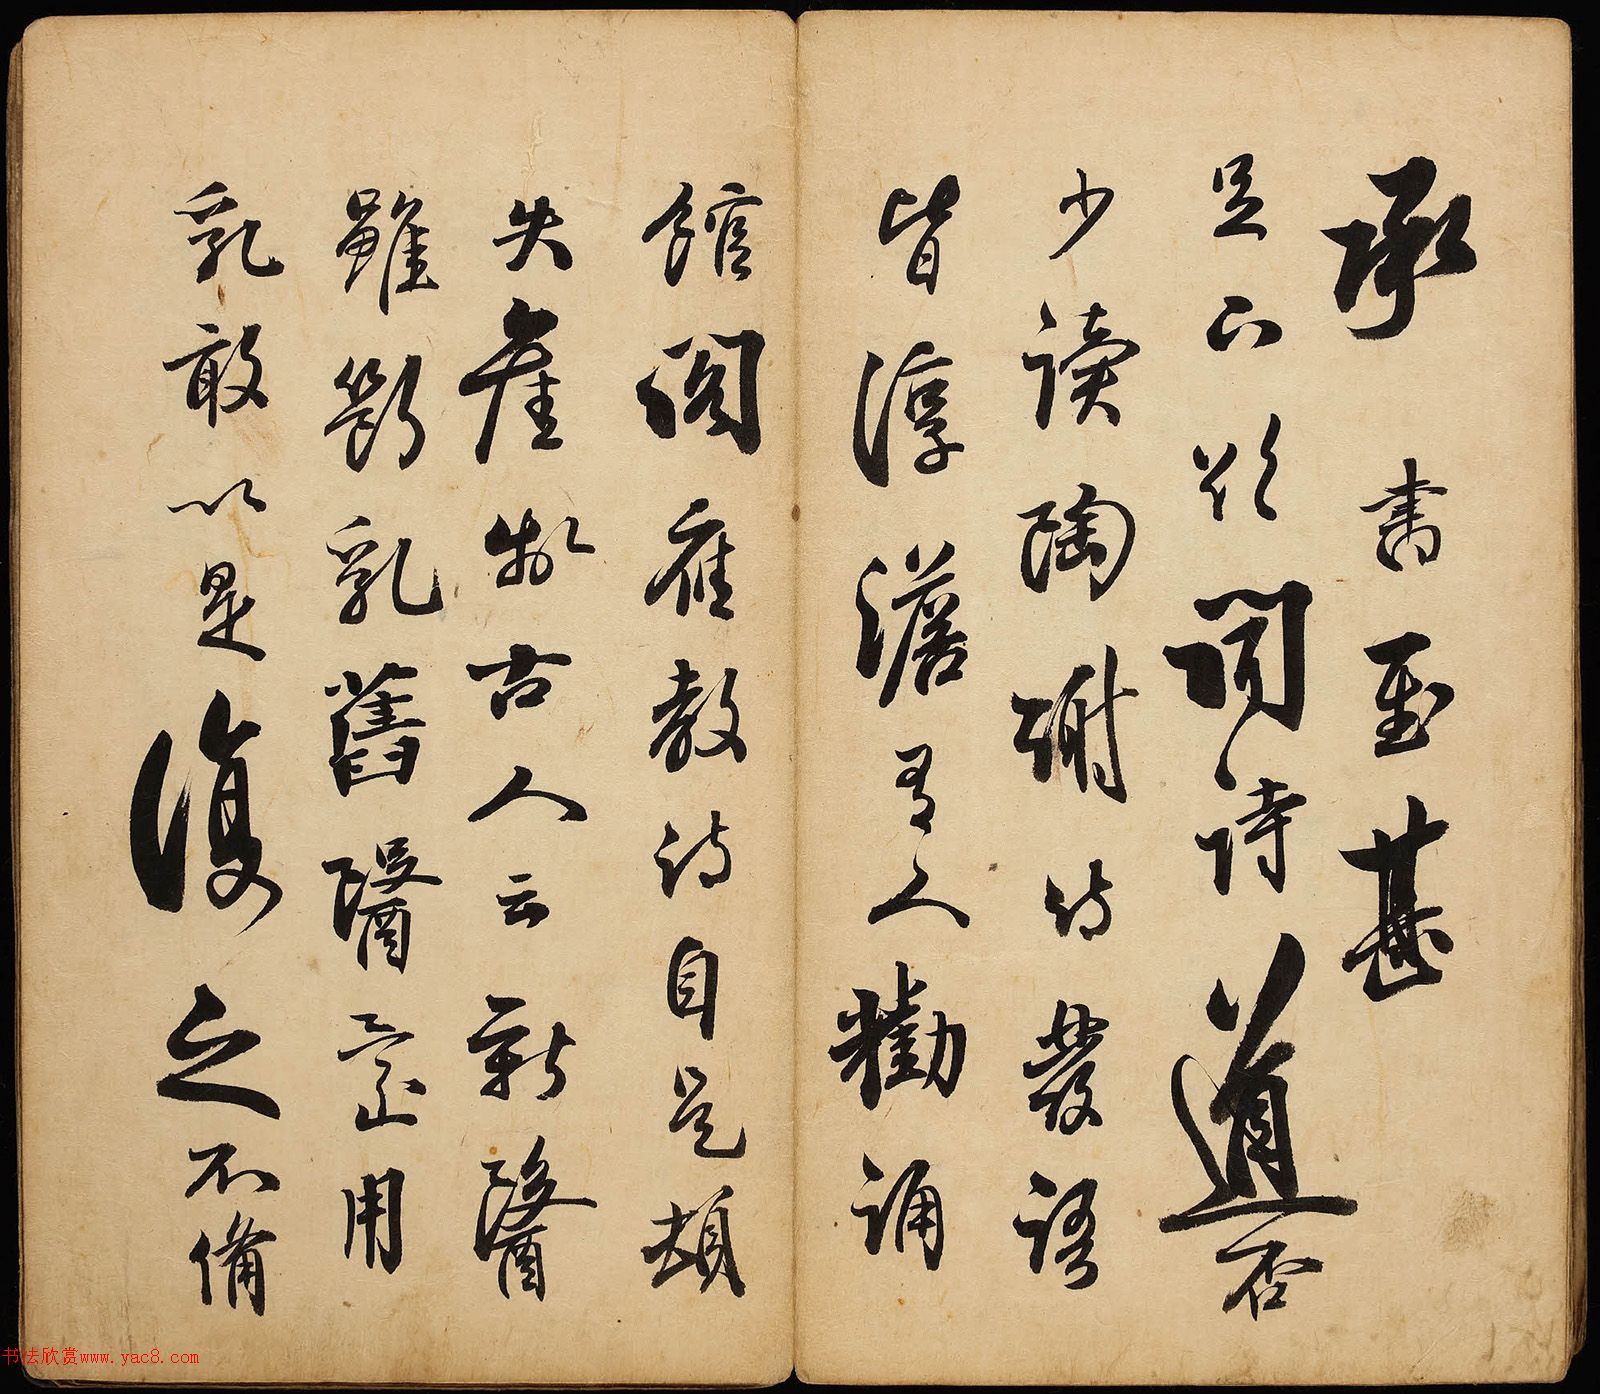 承書至甚
足下欲聞詩道否
少讀陶謝詩發語
皆淳澹有人勸誦
館閣應教詩自是頗
失古人云新醫
雖斷乳舊醫用
乳敢以是復之不備
书法欣赏www.yac8.com